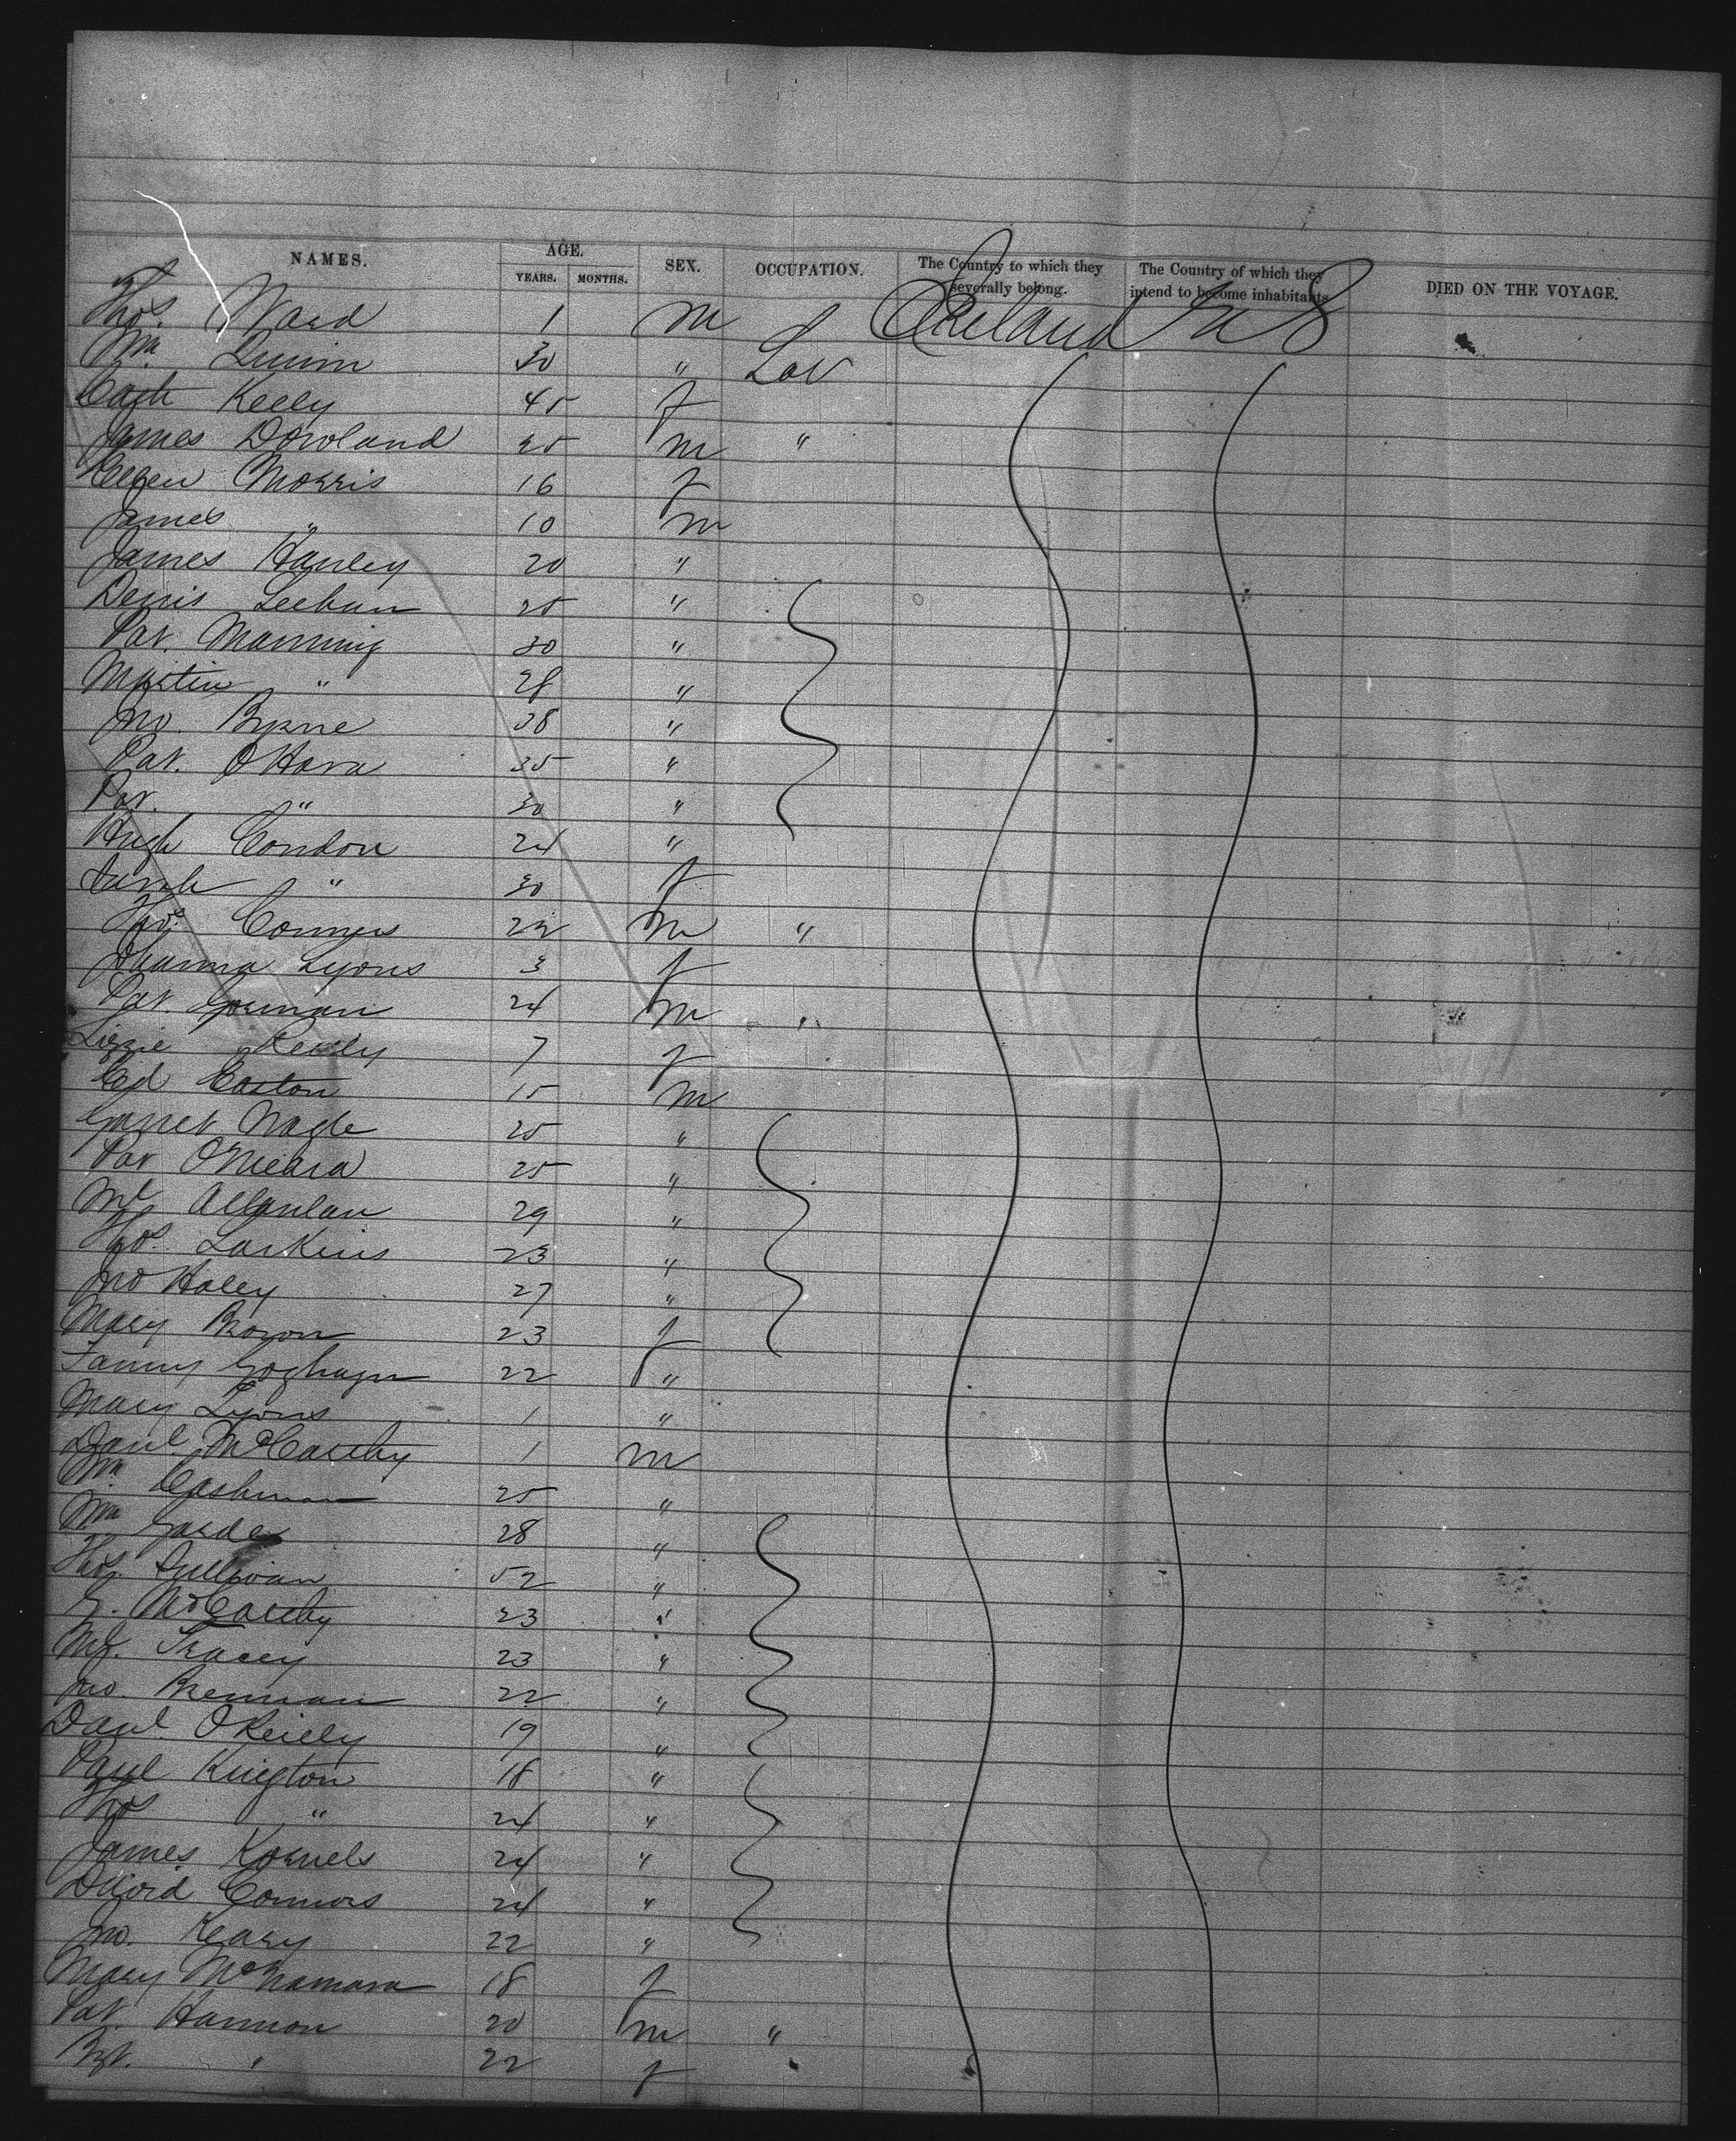 NAMES. AGE. SEX. OCCUPATION. The Country to which they severally belong. The Country of which they intend to become inhabitants DIED ON THE VOYAGE.
YEARS. MONTHS.
Thos. Ward 1 m Ireland U S
Wm Quinn 30 " Lab
Cath Kelly 45 f
James Dowland 25 m "
Ellen Morris 16 f
James " 10 m
James Hanley 20 "
Denis Leehan 25 "
Pat. Manning 30 "
Martin " 28 "
Jno. Byrne 38 "
Pat. O'Hara 35 "
Pat. " 30 "
Hugh Condon 24 "
Sarah " 30 f
Thos. Conners 22 m "
Johanna Lyons 3 f
Pat. Gorman 24 m "
Lizzie Reidy 7 f
Ed Easton 15 m
Garret Nagle 25 "
Pat O'Meara 25 "
Ml Allanlan 29 "
Thos. Larkins 23 "
Jno Haley 27 "
Mary Brown 23 f
Fanny Goghagn 22 "
Mary Lyons 1 "
Danl McCarthy 1 m
Wm Cashman 25 "
Wm Garde 28 "
Thos. Sullivan 52 "
G. McCarthy 23 "
Ml. Tracey 23 "
Jno. Brennan 22 "
Danl. O'Reilly 19 "
Paul Kington 18 "
Thos " 24 "
James Kornels 24 "
David Connors 24 "
Jno. Keary 22 "
Mary McNamara 18 f
Pat. Hannon 20 m "
Bgt. " 22 f